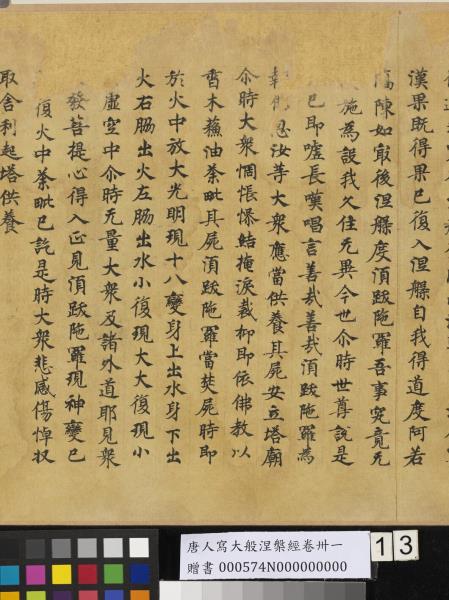 漢果既得果已復入涅槃自我得道度阿若
憍陳如㝡後涅槃度須跋陁羅吾事究竟无
施為設我久住无異今世尒時世尊說是
已即噓長嘆唱言善哉善哉須跋陁羅為
佛恩汝等大衆應當供養其屍安立塔廟
尒時大衆惆悵結掩淚裁抑即依佛教以
香木蘇油荼毗其屍須跋陁羅當焚屍時即
於火中放大光明現十八變身上出水身下出
火右脇出火左脇出水小復現大大復現小
虛空中尒時无量大衆及諸外道耶見衆
發菩提心得入正見須跋陁羅現神變已
復火中荼毗已訖是時大衆悲感傷悼収
取舍利起塔供養
唐人寫大般涅槃經卷卅一
贈書 000574N000000000
13